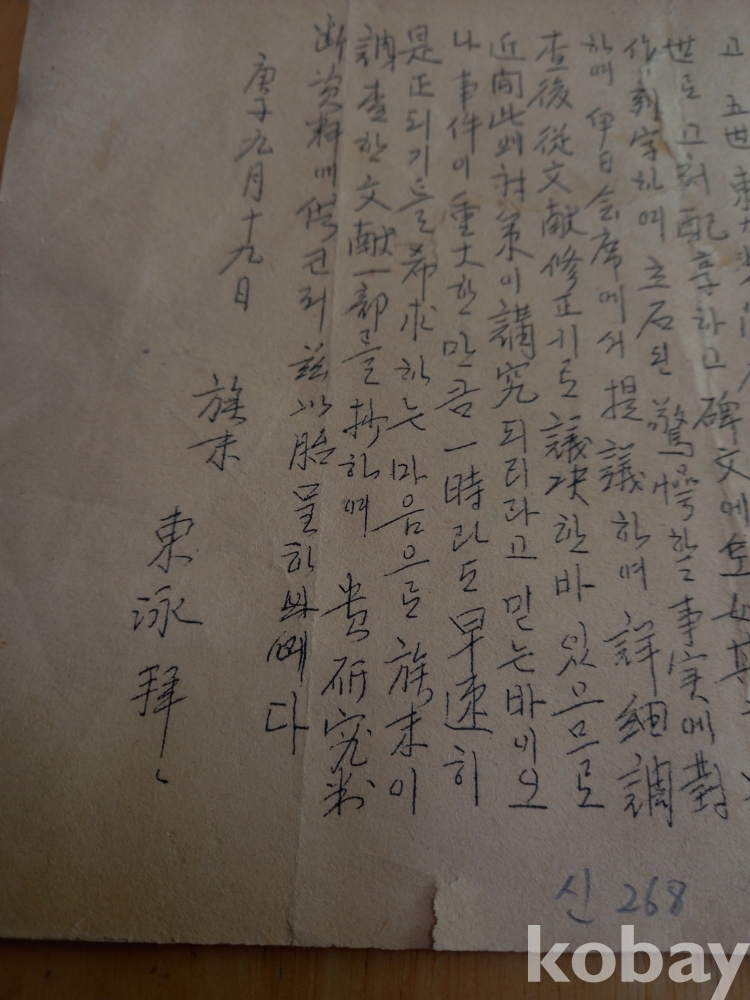 고 五世
世로 고쳐 配享하고 碑文에도
作 刻字하여 立石된 驚愕할 事実에 對
하여 伊日 会席에서 提議하여 詳細 調
查後 從文献 修正키로 議决한 바 있으므로
近間此 対策이 講究되리라고 믿는바이오
나 事件이 重大한 만큼 一時라도 早速히
是正되기를 希求하는 마음으로 族末이
調查한 文献一部를 抄하여 貴研究判
断 資料에 供코저 茲以 하
다
庚子 九月 十九日
族末
東泳 拜
신 268
kobay